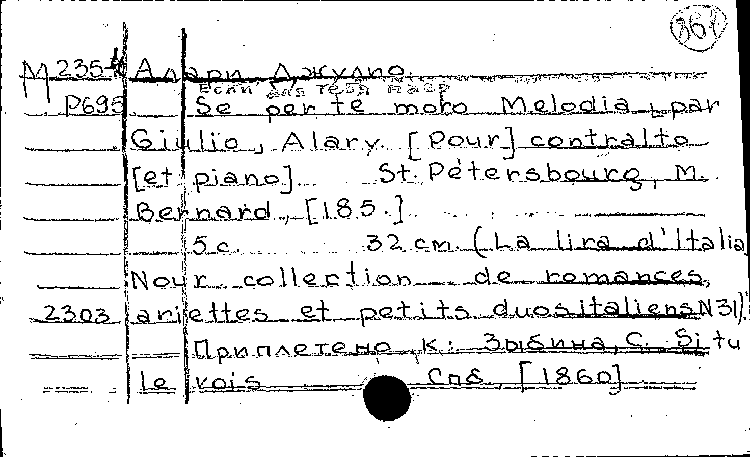 361
M 235-4 Алари Джулио
Если для тебя
P695 Se per te moro Melodia, par
Giulio, Alary [Pour] contralto
[et piano] St. Pétersbourg, M.
Bernard, [185.]
5 c. 32 cm. (La lira d'Italia
Nour collection de romances,
2303 ariettes et petits duos italiens N31).
Приплетено к: Зыбина, С. Si tu
le vois Спб, [1860]